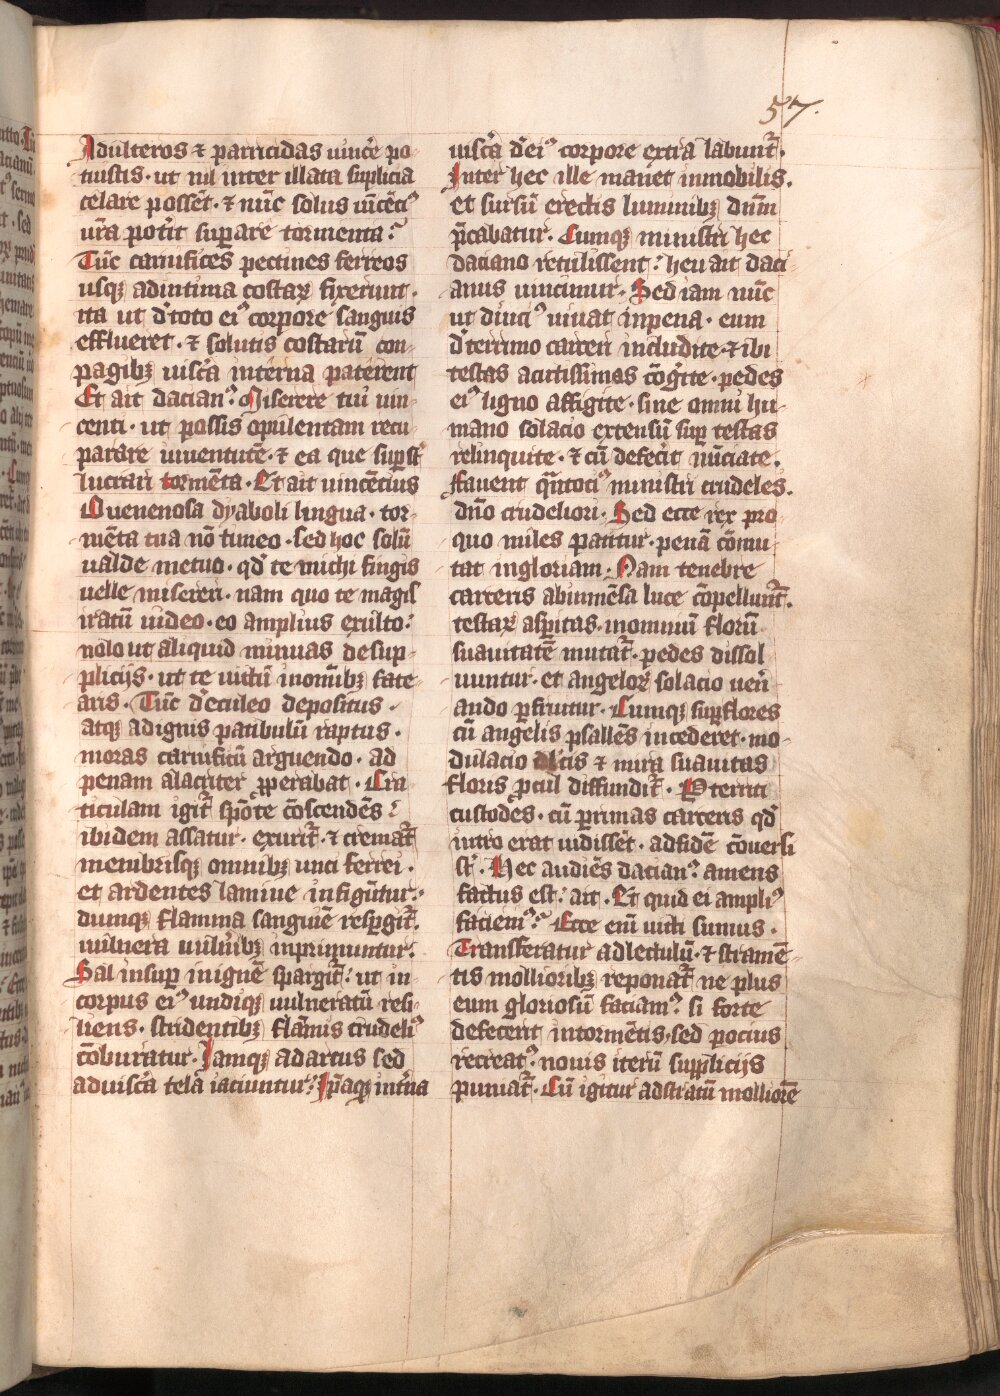 57.
Adulteros ⁊ parricidas uinc̄e po-
tuistis · ut nil inter illata suplicia
celare possēt · ⁊ nūc solus uīcēciꝰ
ur̄a pot̄it suꝑare tormenta ?
Tūc carnifices pectines ferreos
usqꝫ adintima costaꝝ fixerunt ·
ita ut d̄toto eiꝰ corpore sanguis
efflueret · ⁊ solutis costarū con-
pagibꝫ uisc̄a interna paterent
Et ait dacianꝰ. Miserere tui uin-
centi · ut possis opulentam recu-
parare iuuentutē · ⁊ ea que suꝑst̄
lucrari tormēta · Et ait uincēcius
O uenenosa dyaboli lingua · tor-
mēta tua nō timeo · sed hoc solū
ualde metuo · qd̄ te michi fingis
uelle misereri · nam quo te magis
iratū uideo · eo amplius exulto :
nolo ut aliquid minuas de sup-
plicijs · ut te uictū inomībꝫ fate-
aris · Tūc d̄eculeo depositus ·
atqꝫ adignis patibulū raptus ·
moras carnificū arguendo · ad
penam alacriter ꝓperabat · Cra
ticulam igit᷑ spōte cōscendēs :
ibidem assatur · exurit᷑ · ⁊ cremat᷑
membrisqꝫ omnibꝫ unci ferrei ·
et ardentes lamine infigūtur :
dumqꝫ flamma sanguīe resꝑgit᷑ ·
uulnera uulnībꝫ inprimuntur :
Sal insuꝑ inignē spargit᷑ : ut in
corpus eiꝰ undiqꝫ uulneratū resi-
liens · stridentibꝫ flāmis crudeliꝰ
cōburatur · Jamqꝫ ad artus sed
aduisc̄a tela iaciuntur : Jp̄aqꝫ int̄na
uisc̄a d̄eiꝰ corpore extra labunt᷑ ·
Inter hec ille manet inmobilis ·
et sursū erectis luminibꝫ dn̄m
p̄cabatur · Cumqꝫ ministri hec
daciano retulissent : heu ait daci
anus uincimur · Sed iam nūc
ut diuciꝰ uiuat inpena · eum
d̄terrimo carceri includite · ⁊ ibi
testas acutissimas cōḡite · pedes
eiꝰ ligno affigite · sine omni hu-
mano solacio extensū suꝑ testas
relinquite · ⁊ cū defec̄it nūciate ·
Fauent q̄ntociꝰ ministri crudeles ·
dn̄o crudeliori · Sed ecce rex pro
quo miles patitur · penā cōmu-
tat ingloriam · Nam tenebre
carceris abinmēsa luce cōpellunt᷑ ·
testaꝝ asꝑitas · inomniū florū
suauitatē mutat᷑ · pedes dissol
uuntur · et angeloꝝ solacio uen̄
ando ꝑfruitur · Cumqꝫ suꝑflores
cū angelis psallēs incederet · mo-
dulacio dl̄cis ⁊ mira suauitas
floris ꝓcul diffundit᷑ · Pterriti
custodes · cū ꝑrimas carceris qd̄
intro erat uidissēt · adfidē cōuersi
st̄ · Hec audiēs dacianꝰ amens
factus est : ait · Et quid ei ampliꝰ
faciemꝰ · Ecce enī uicti sumus ·
Transferatur adlectulū · ⁊ stramē-
tis mollioribꝫ reponat᷑ ne plus
eum gloriosū faciamꝰ si forte
defecerit intormētis · sed pocius
recreatꝰ · nouis iterū supplicijs
puniat᷑ · Cū igitur adstratū molliorē